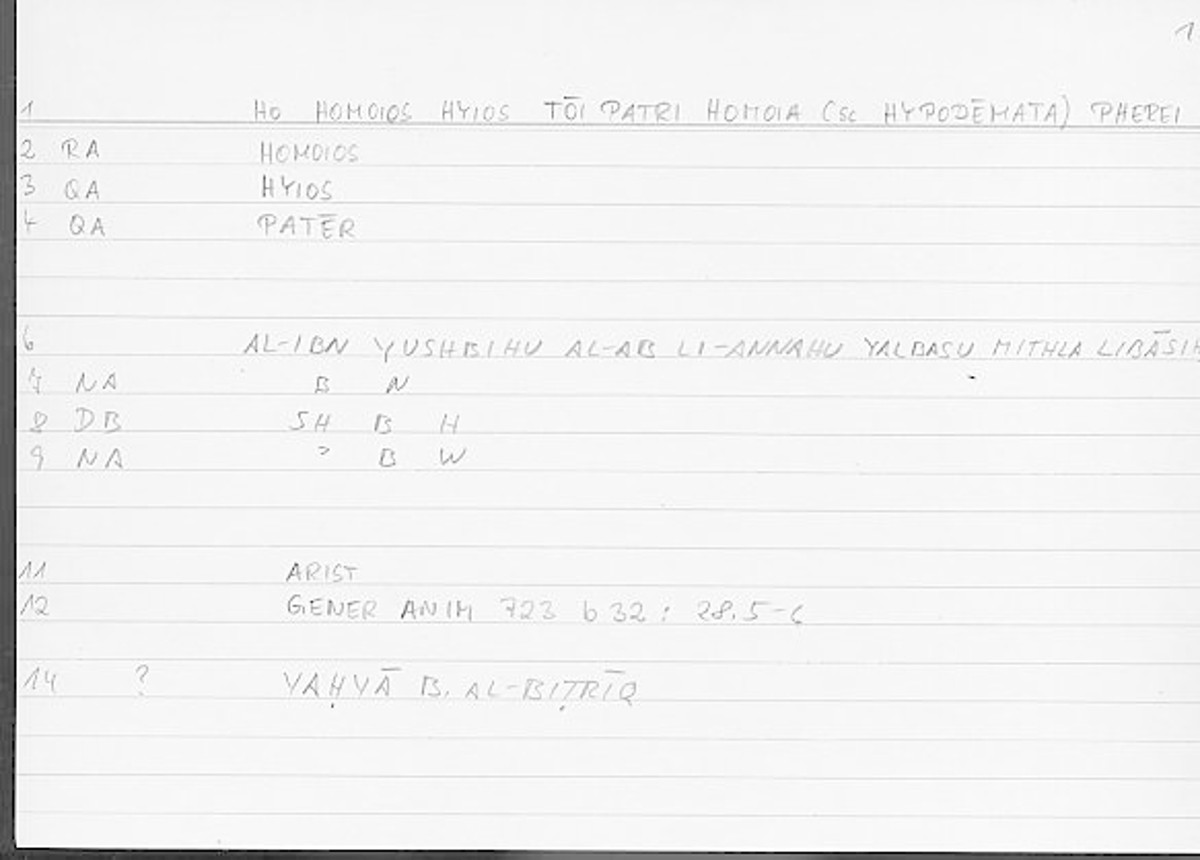 1
1 HO HOMOIOS HYIOS TŌI PATRI HOMOIA (SC HYPODĒMATA) PHEREI
2 RA HOMOIOS
3 QA HYIOS
4 QA PATĒR
6 AL-IBN YUSHBIHU AL-AB LI-ANNAHU YALBASU MITHLA LIBĀSIH
7 NA B N
8 DB SH B H
9 NA ʾ B W
11 ARIST
12 GENER ANIM 723 b 32 : 28.5-6
14 ? YAḤYĀ B. AL-BIṬRĪQ